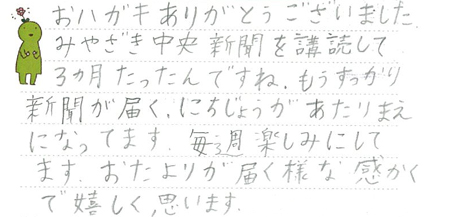 おハガキありがとうございました.
みやざき中央新聞を講読して
3ヵ月たったんですね.もうすっかり
新聞が届く,にちじょうがあたりまえ
になってます.毎週楽しみにして
ます.おたよりが届く様な感かく
で嬉しく,思います.